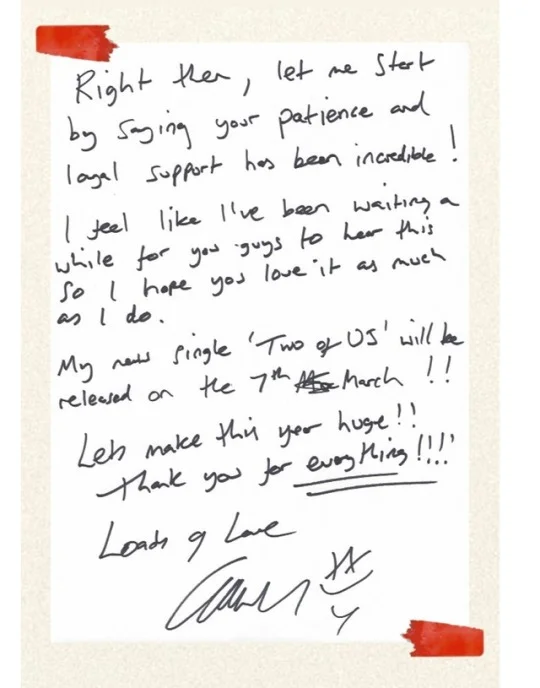 Right then, let me start
by saying your patience and
loyal support has been incredible!
I feel like I've been waiting a
while for you guys to hear this
So I hope you love it as much
as I do.
My new single 'Two of US' will be
released on the 7th March !!
Lets make this year huge!!
Thank you for everything!!!!
Loads of Love